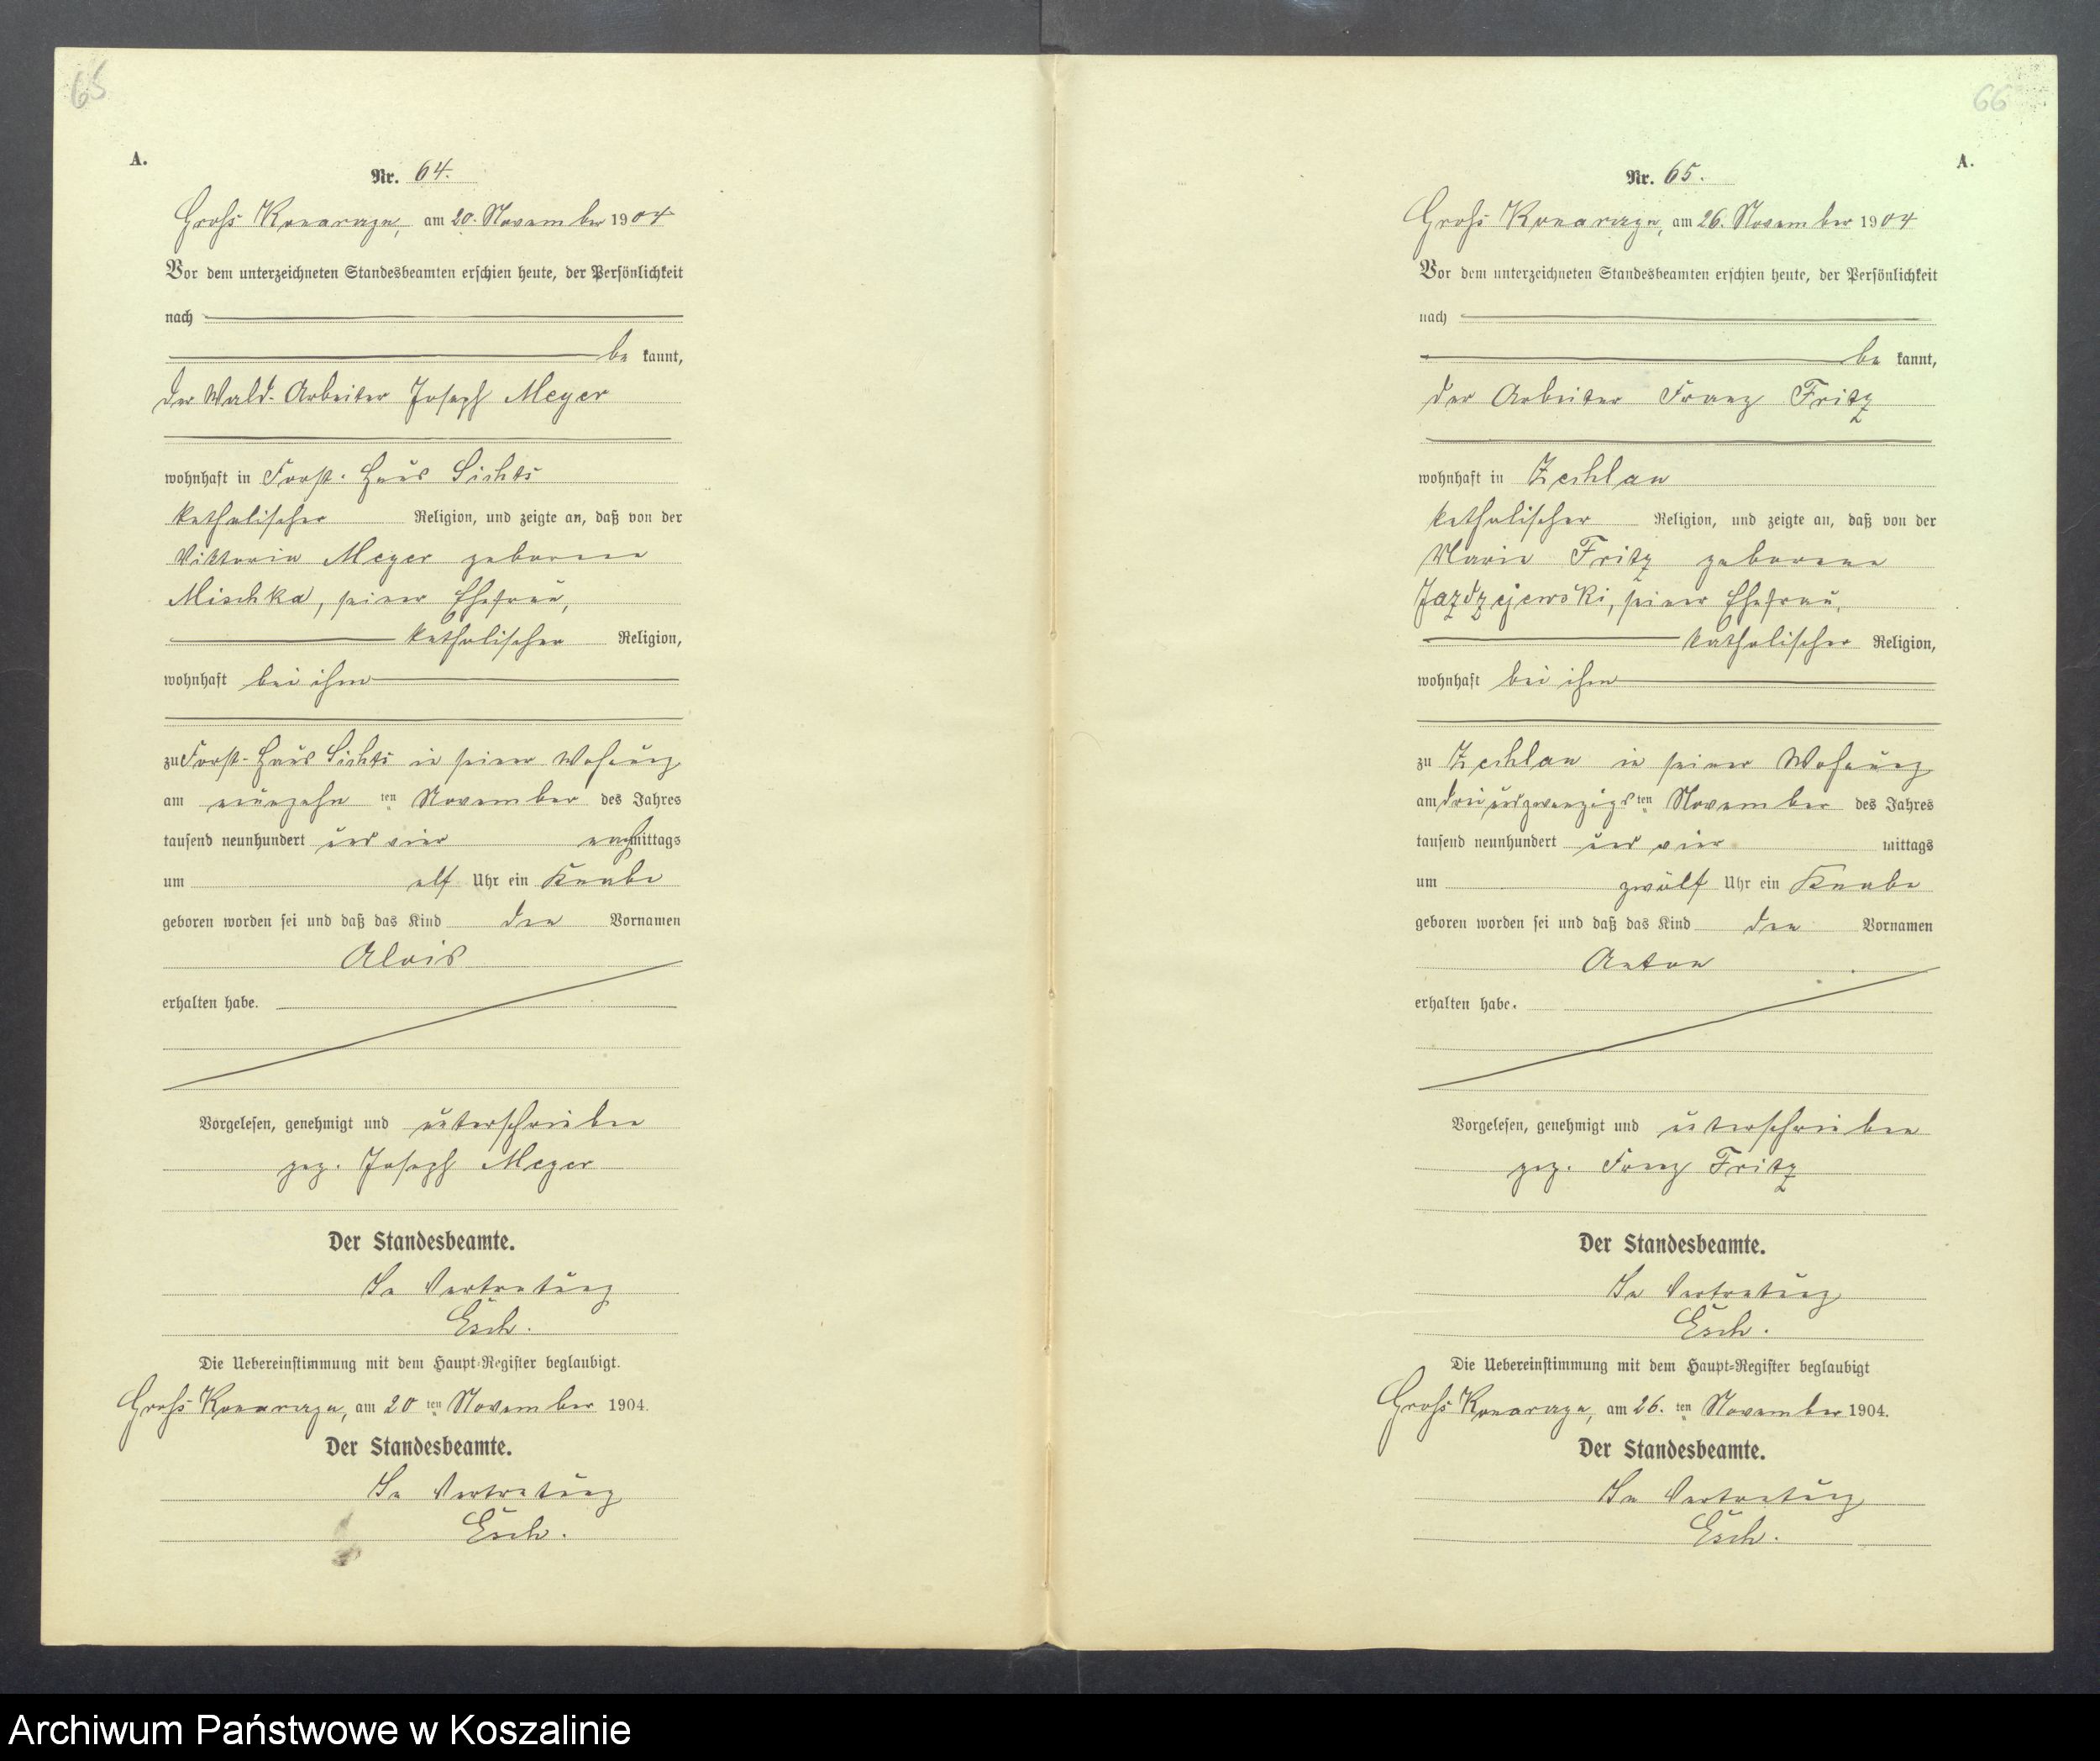 65
A.
Nr. 64.
Groß Konarczyn, am 20. November 1904
Vor dem unterzeichneten Standesbeamten erschien heute, der Persönlichkeit
nach
be kannt,
der Wald-Arbeiter Joseph Meyer
wohnhaft in Forst-Haus Sichts
katholischer Religion, und zeigte an, daß von der
Viktoria Meyer geborene
Mischka, seiner Ehefrau,
katholischer Religion,
wohnhaft bei ihm
zu Forst-Haus Sichts in seiner Wohnung
am neunzehn ten November des Jahres
tausend neunhundert und vier nachmittags
um elf Uhr ein Knabe
geboren worden sei und daß das Kind den Vornamen
Alois
erhalten habe.
Vorgelesen, genehmigt und unterschrieben
gez. Joseph Meyer
Der Standesbeamte.
In Vertretung
Esch.
Die Uebereinstimmung mit dem Haupt-Register beglaubigt.
Groß Konarczyn, am 20 ten November 1904.
Der Standesbeamte.
In Vertretung
Esch.
66
A.
Nr. 65.
Groß Konarczyn, am 26. November 1904
Vor dem unterzeichneten Standesbeamten erschien heute, der Persönlichkeit
nach
be kannt,
der Arbeiter Franz Fritz
wohnhaft in Zechlau
katholischer Religion, und zeigte an, daß von der
Marie Fritz geborene
Jazdzejewski, seiner Ehefrau,
katholischer Religion,
wohnhaft bei ihm
zu Zechlau in seiner Wohnung
am dreiundzwanzigsten November des Jahres
tausend neunhundert und vier mittags
um zwölf Uhr ein Knabe
geboren worden sei und daß das Kind den Vornamen
Anton
erhalten habe.
Vorgelesen, genehmigt und unterschrieben
gez. Franz Fritz
Der Standesbeamte.
In Vertretung
Esch.
Die Uebereinstimmung mit dem Haupt-Register beglaubigt
Groß Konarczyn, am 26. ten November 1904.
Der Standesbeamte.
In Vertretung
Esch.
Archiwum Państwowe w Koszalinie